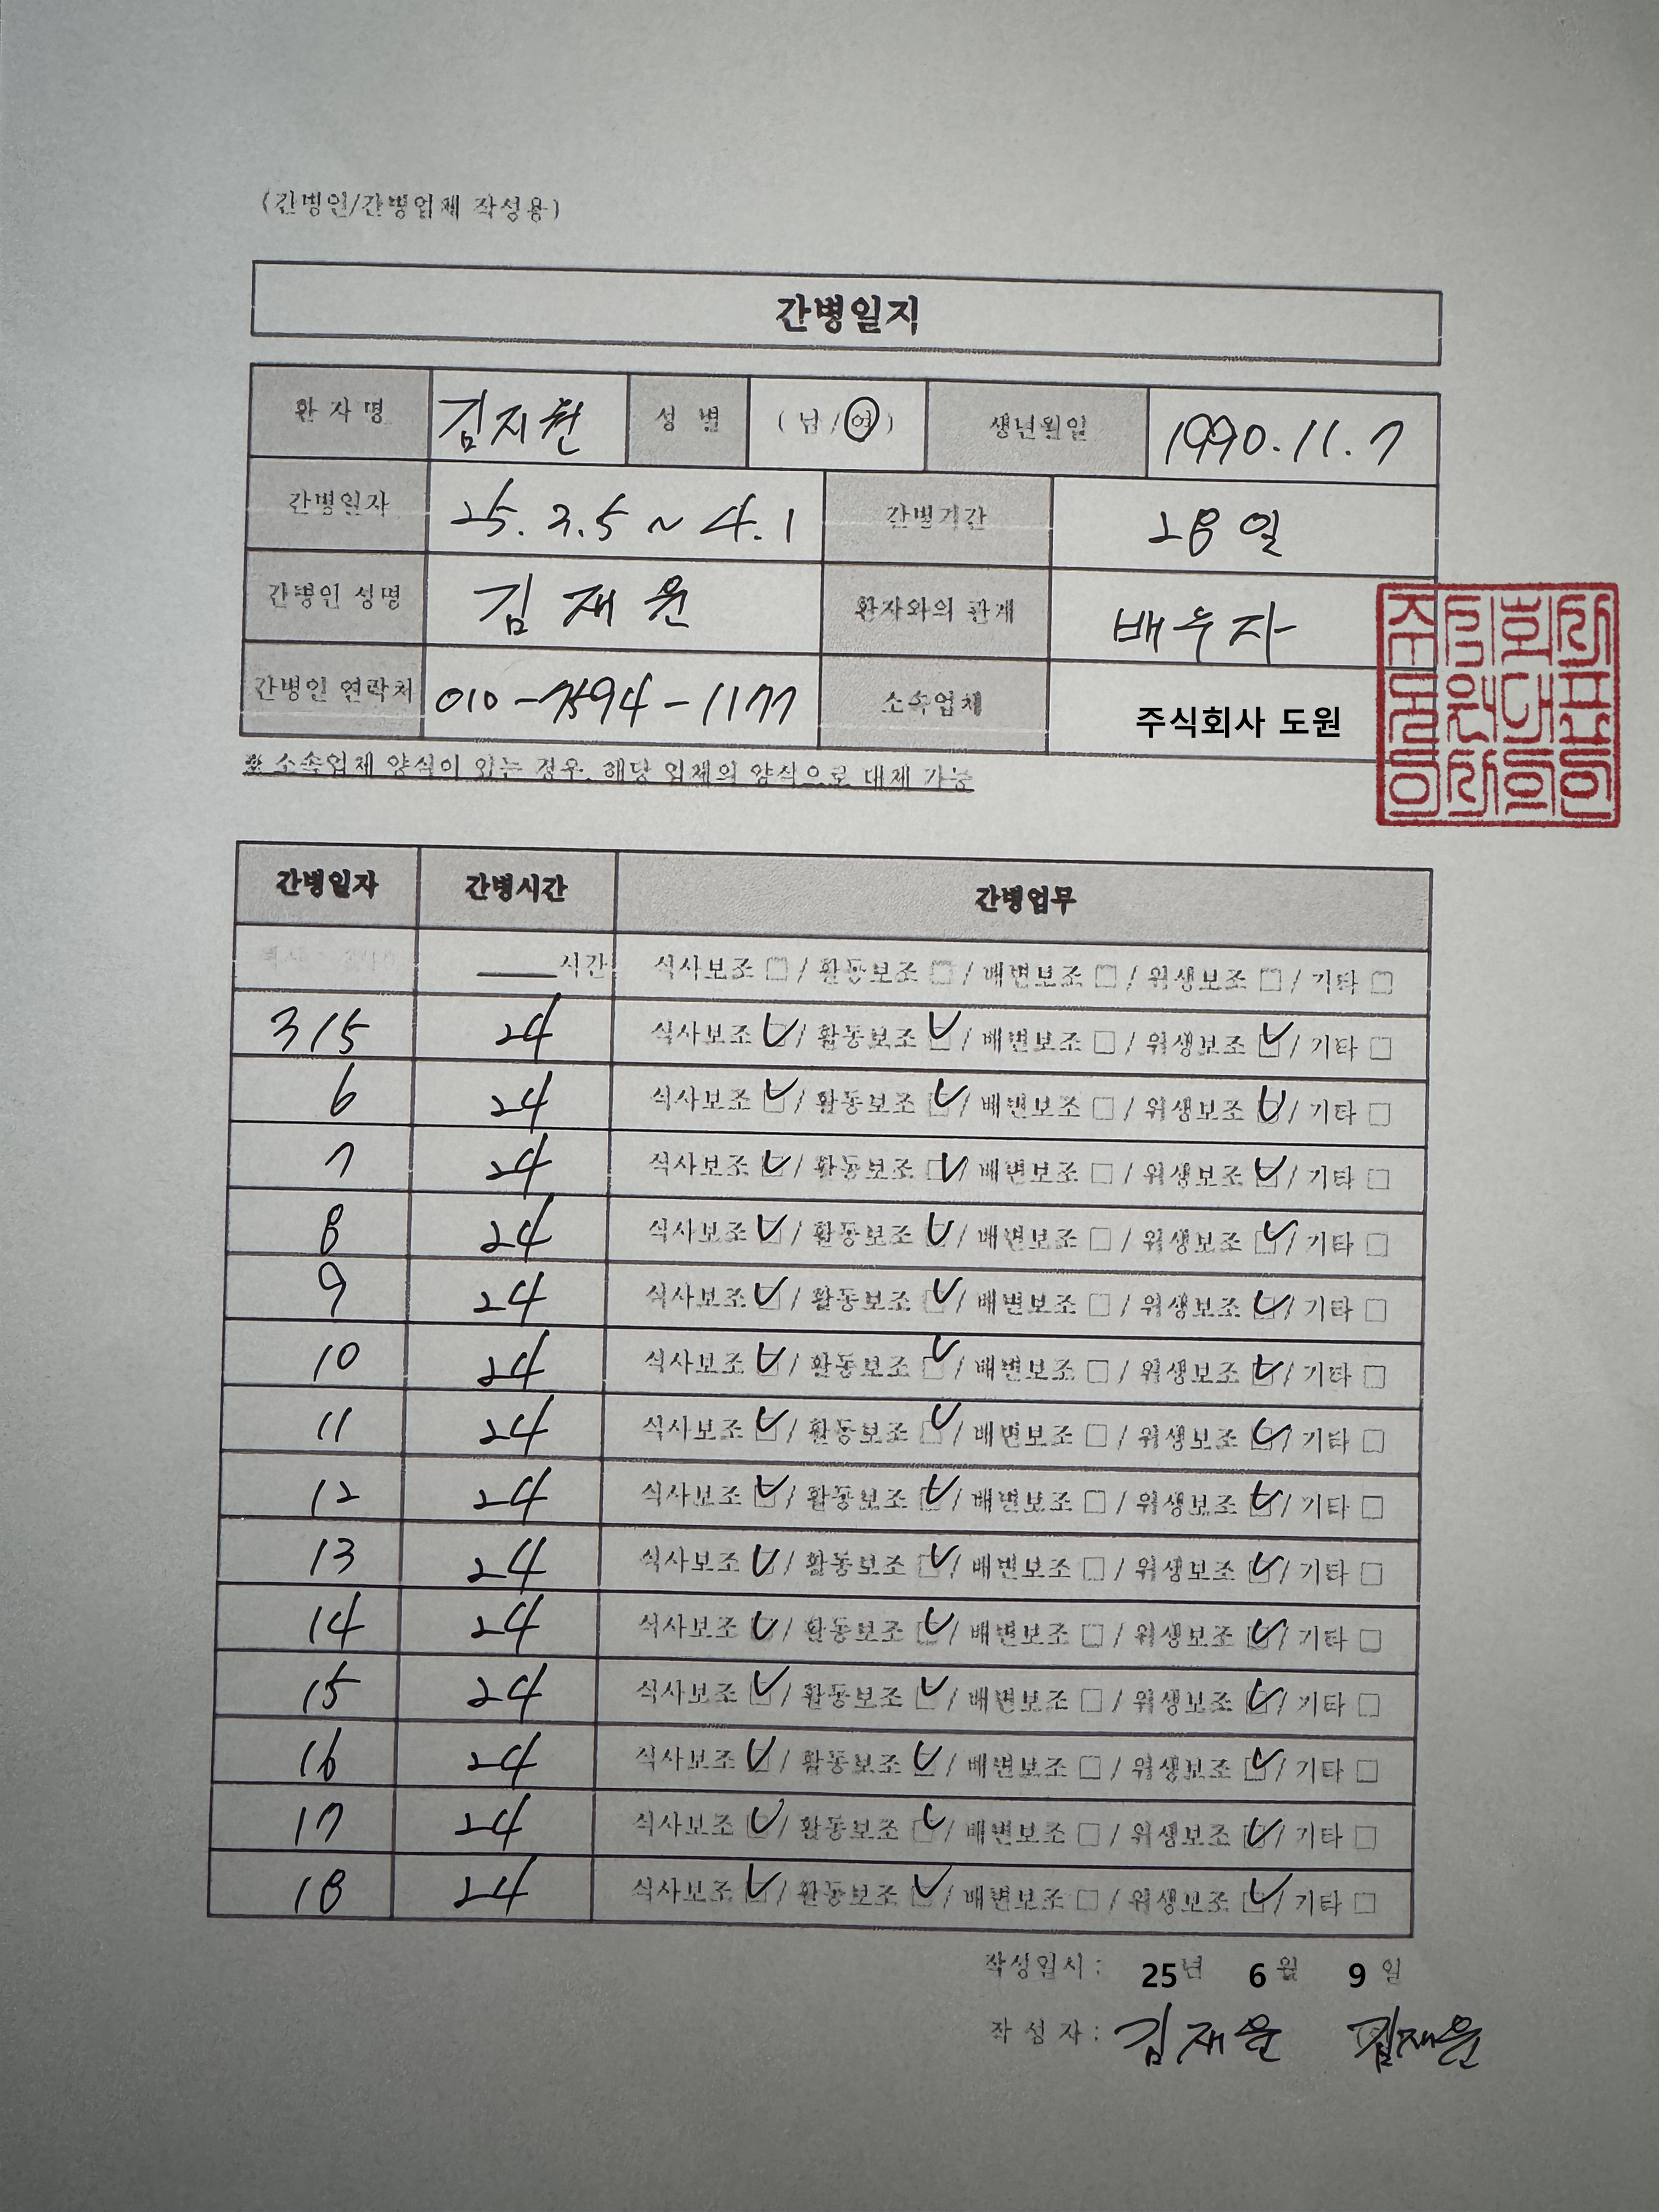 (간병인/간병업체 작성용)
간병일지
환 자 명 김지현 성 별 ( 남 / 여 ) 생년월일 1990.11.7
간병일자 25.3.5 ~ 4.1 간병기간 28일
간병인 성명 김재윤 환자와의 관계 배우자
간병인 연락처 010-7594-1177 소속업체 주식회사 도원
※ 소속업체 양식이 있는 경우, 해당 업체의 양식으로 대체 가능
간병일자 간병시간 간병업무
____시간 식사보조 □ / 활동보조 □ / 배변보조 □ / 위생보조 □ / 기타 □
3/5 24 식사보조 ☑ / 활동보조 ☑ / 배변보조 □ / 위생보조 ☑ / 기타 □
6 24 식사보조 ☑ / 활동보조 ☑ / 배변보조 □ / 위생보조 ☑ / 기타 □
7 24 식사보조 ☑ / 활동보조 ☑ / 배변보조 □ / 위생보조 ☑ / 기타 □
8 24 식사보조 ☑ / 활동보조 ☑ / 배변보조 □ / 위생보조 ☑ / 기타 □
9 24 식사보조 ☑ / 활동보조 ☑ / 배변보조 □ / 위생보조 ☑ / 기타 □
10 24 식사보조 ☑ / 활동보조 ☑ / 배변보조 □ / 위생보조 ☑ / 기타 □
11 24 식사보조 ☑ / 활동보조 ☑ / 배변보조 □ / 위생보조 ☑ / 기타 □
12 24 식사보조 ☑ / 활동보조 ☑ / 배변보조 □ / 위생보조 ☑ / 기타 □
13 24 식사보조 ☑ / 활동보조 ☑ / 배변보조 □ / 위생보조 ☑ / 기타 □
14 24 식사보조 ☑ / 활동보조 ☑ / 배변보조 □ / 위생보조 ☑ / 기타 □
15 24 식사보조 ☑ / 활동보조 ☑ / 배변보조 □ / 위생보조 ☑ / 기타 □
16 24 식사보조 ☑ / 활동보조 ☑ / 배변보조 □ / 위생보조 ☑ / 기타 □
17 24 식사보조 ☑ / 활동보조 ☑ / 배변보조 □ / 위생보조 ☑ / 기타 □
18 24 식사보조 ☑ / 활동보조 ☑ / 배변보조 □ / 위생보조 ☑ / 기타 □
작성일시 : 25년 6월 9일
작 성 자 : 김재윤 김재윤